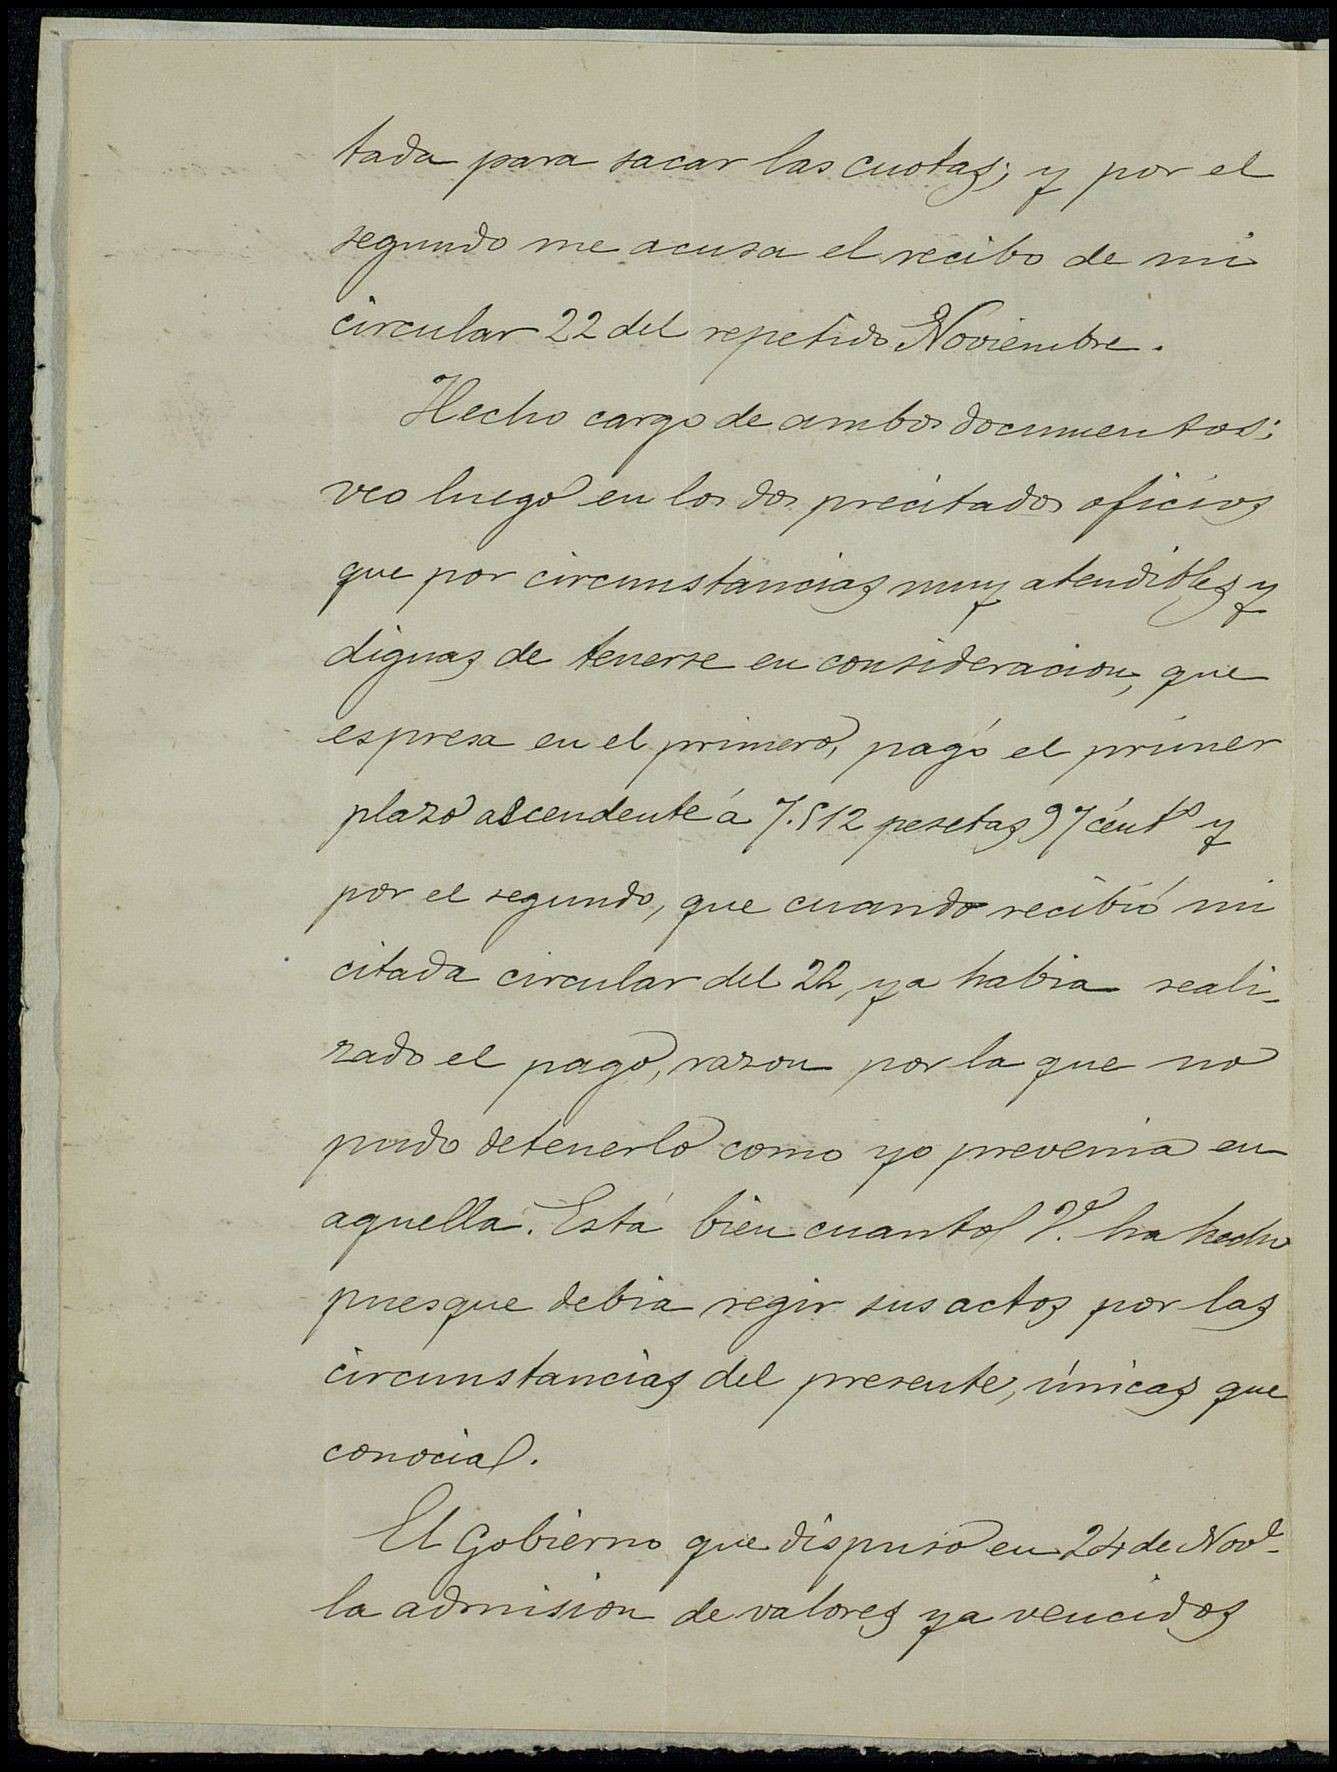 tada para sacar las cuotas; y por el
segundo me acusa el recibo de mi
circular 22 del repetido Noviembre.
Hecho cargo de ambos documentos;
veo luego en los dos precitados oficios
que por circunstancias muy atendibles y
dignas de tenerse en consideracion, que
espresa en el primero, pagó el primer
plazo ascendente á 7.512 pesetas 97 cént.s y
por el segundo, que cuando recibió mi
citada circular del 22, ya habia reali-
zado el pago, razon por la que no
pudo detenerlo como yo prevenia en
aquella. Está bien cuanto V. ha hecho
puesque debia regir sus actos por las
circunstancias del presente, únicas que
conocia.
El Gobierno que dispuso en 24 de Nov.e
la admision de valores ya vencidos